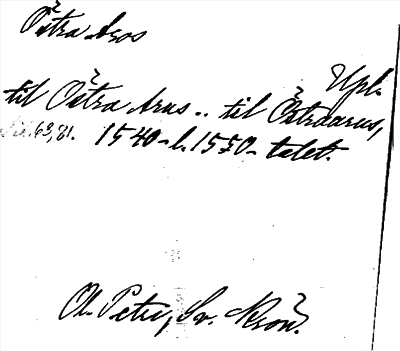 Östra Aros
Upl.
til Östra Arus .. til Östraarus,
Sid. 63, 21. 1540- l. 1550-talet.
Ol. Petri, Sv. Krön.